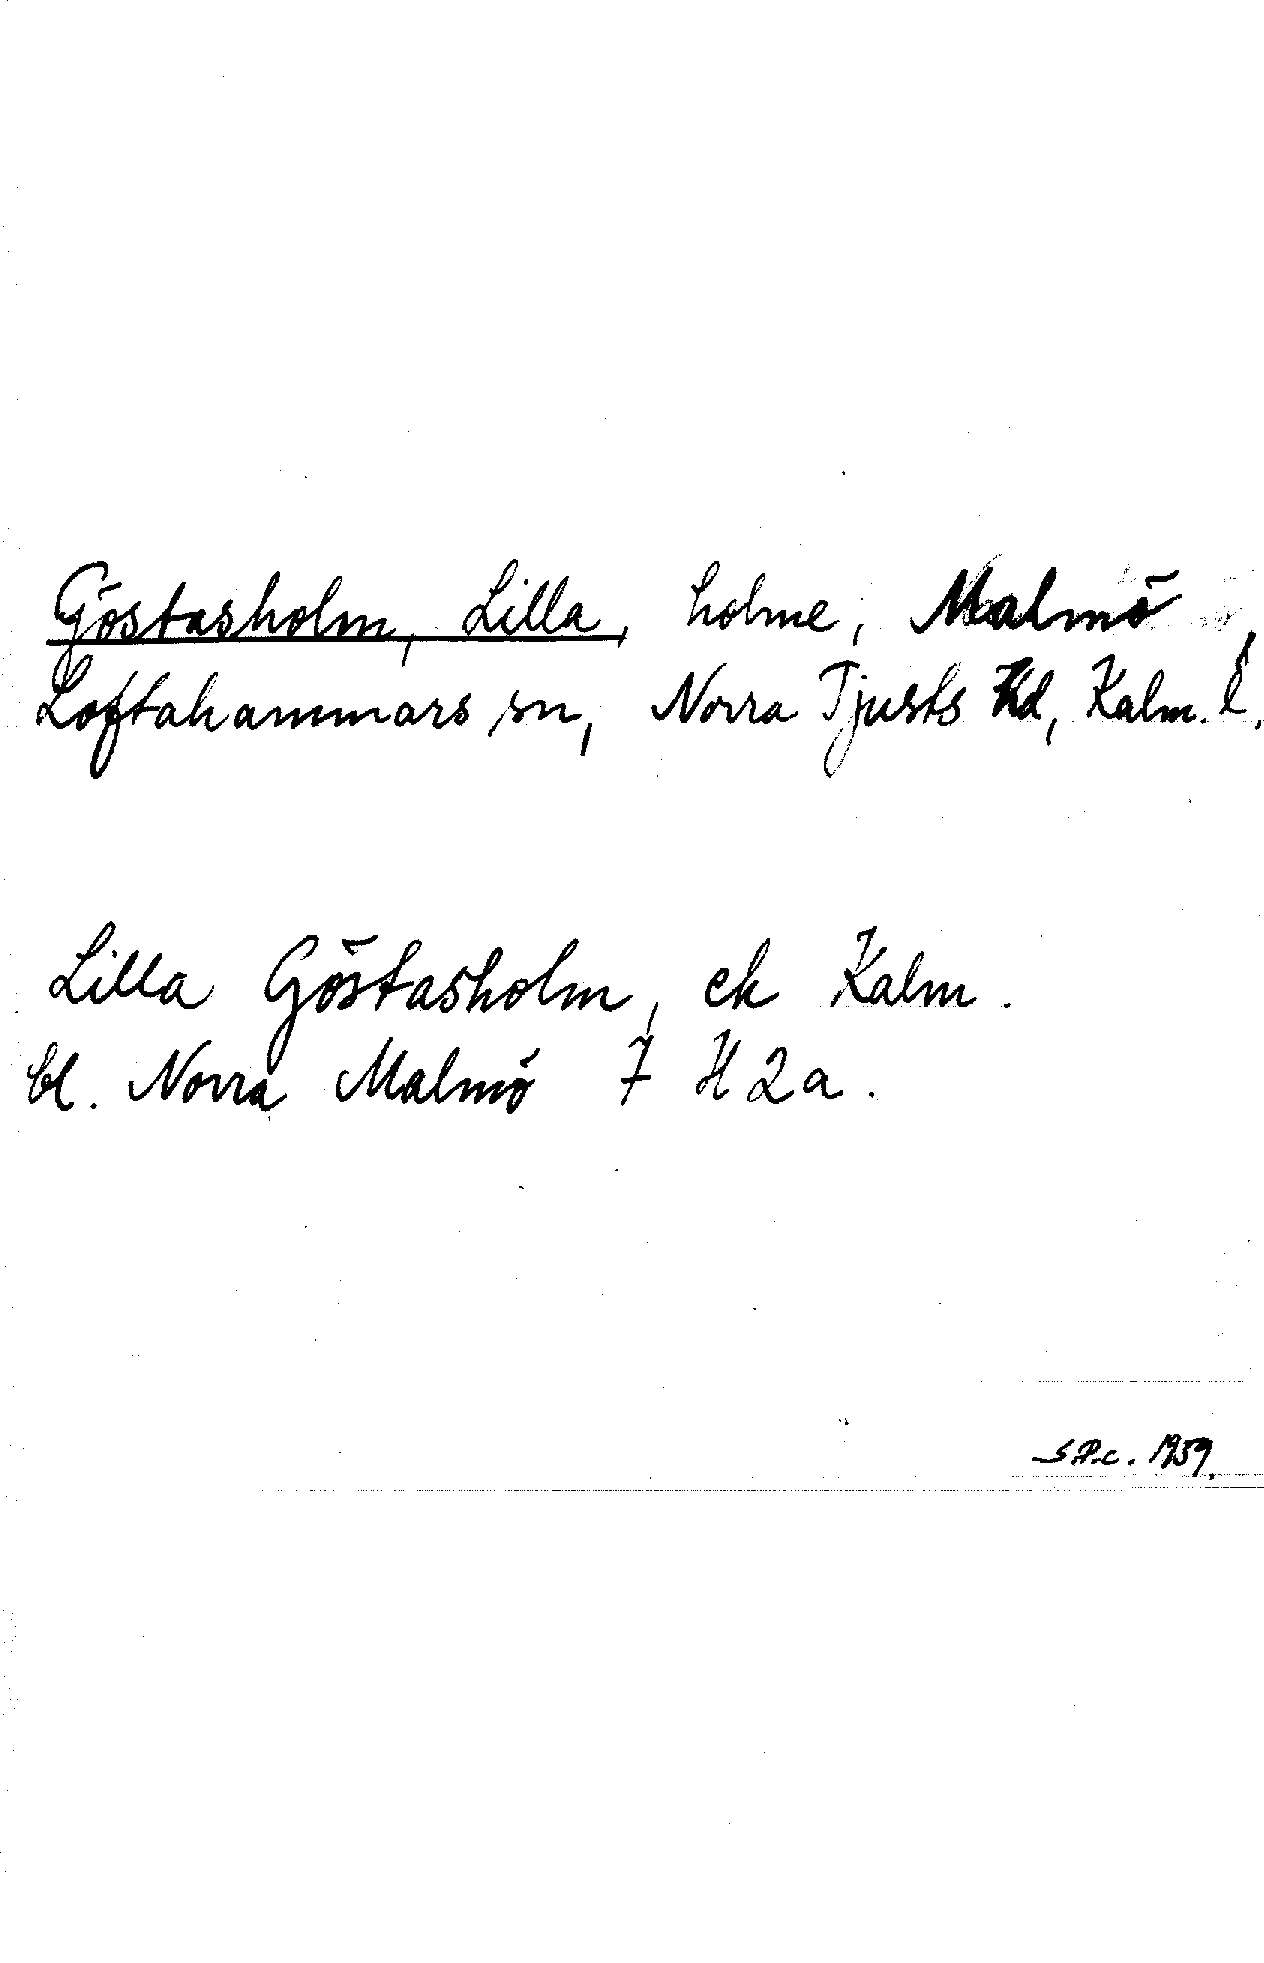 Göstasholm, Lilla, holme, Malmö,
Loftahammars sn, Norra Tjusts Hd, Kalm. L.
Lilla Göstasholm, ek Kalm.
bl. Norra Malmö 7 H 2a.
1959.